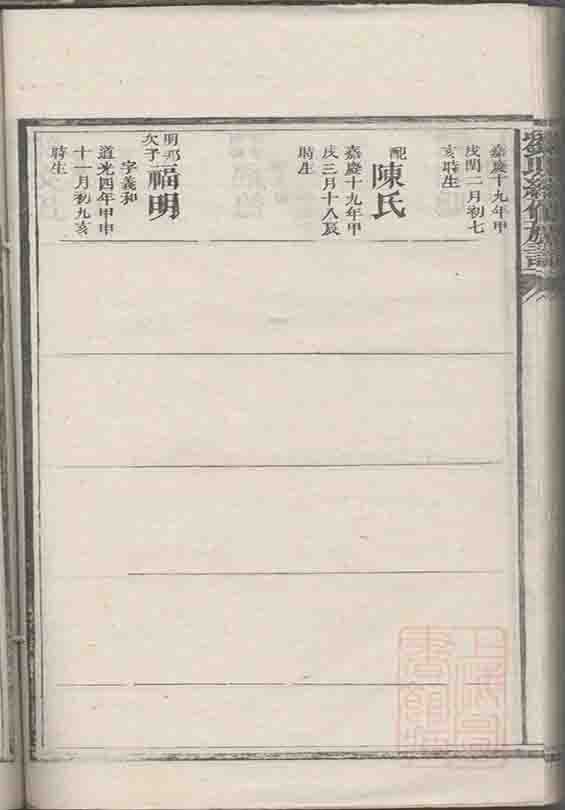 嘉慶十九年甲
戌閏二月初七
亥時生
配
陳氏
嘉慶十九年甲
戌三月十八辰
時生
明邦
次子
福明
字義和
道光四年甲申
十一月初九亥
時生